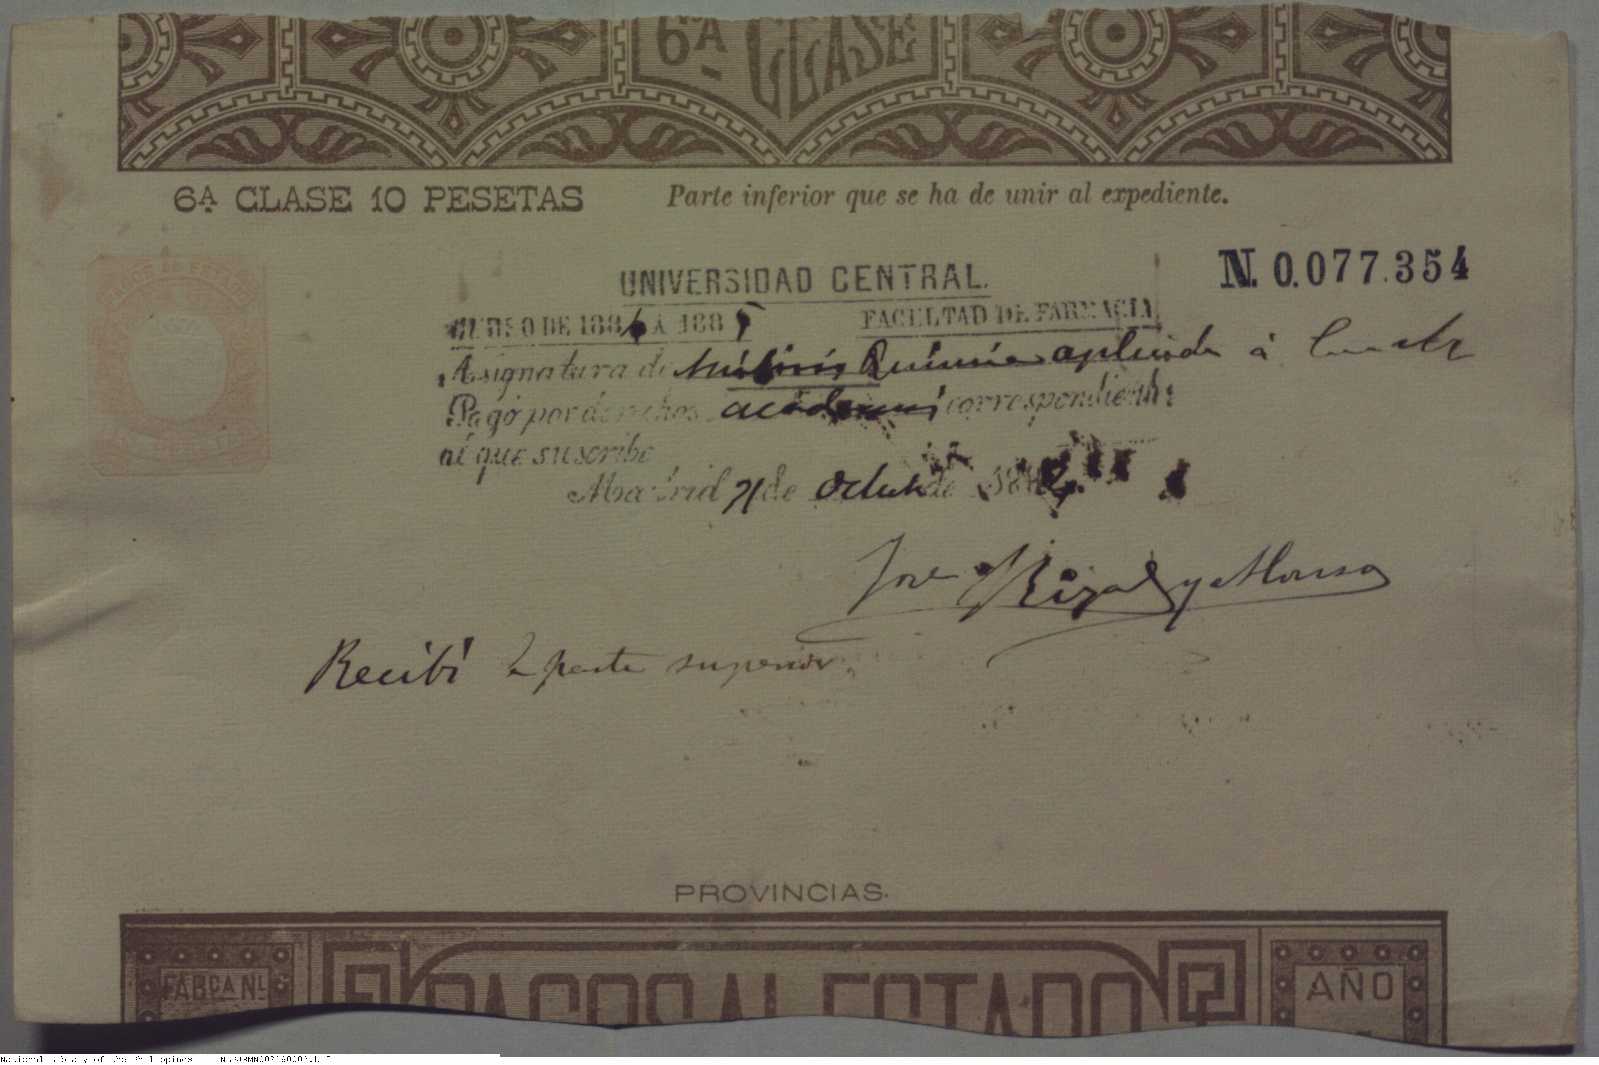 6ª CLASE
6ª CLASE 10 PESETAS Parte inferior que se ha de unir al expediente.
N. 0.077.354
UNIVERSIDAD CENTRAL.
CURSO DE 188 A 1885 FACULTAD DE FARMACIA
Asignatura de Química aplicada á
Pagó por derechos correspondiente
al que suscribe
Madrid de Octubre de 188
José Rizal y Alonso
Recibí la parte superior.
PROVINCIAS.
FABCA NL PAGOS AL ESTADO AÑO